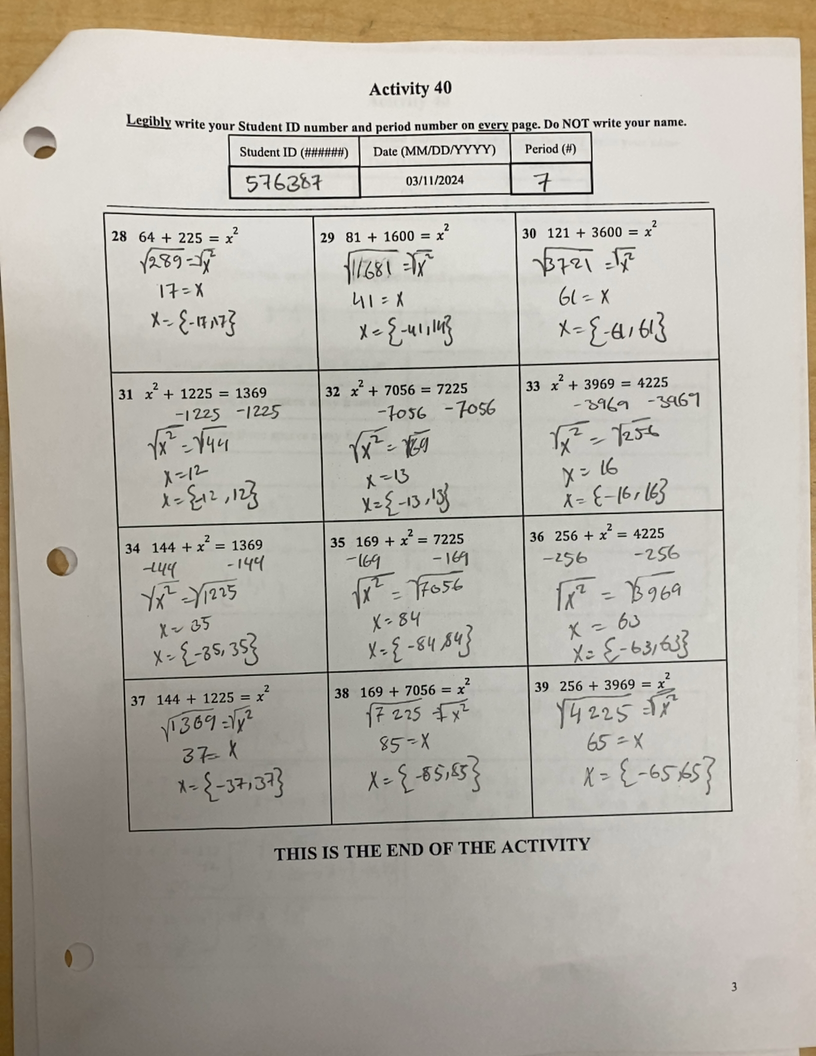 Activity 40
Legibly write your Student ID number and period number on every page. Do NOT write your name.
Student ID (######) Date (MM/DD/YYYY) Period (#)
576387 03/11/2024 7
28 64 + 225 = x²
√289 = √x²
17 = x
x = {-17,17}
29 81 + 1600 = x²
√1681 = √x²
41 = x
x = {-41,14}
30 121 + 3600 = x²
√3721 = √x²
61 = x
x = {-61,61}
31 x² + 1225 = 1369
-1225 -1225
√x² = √144
x = 12
x = {-12,12}
32 x² + 7056 = 7225
-7056 -7056
√x² = √169
x = 13
x = {-13,13}
33 x² + 3969 = 4225
-3969 -3969
√x² = √256
x = 16
x = {-16,16}
34 144 + x² = 1369
-144 -144
√x² = √1225
x = 35
x = {-35,35}
35 169 + x² = 7225
-169 -169
√x² = √7056
x = 84
x = {-84,84}
36 256 + x² = 4225
-256 -256
√x² = √3969
x = 63
x = {-63,63}
37 144 + 1225 = x²
√1369 = √x²
37 = x
x = {-37,37}
38 169 + 7056 = x²
√7225 = √x²
85 = x
x = {-85,85}
39 256 + 3969 = x²
√4225 = √x²
65 = x
x = {-65,65}
THIS IS THE END OF THE ACTIVITY
3